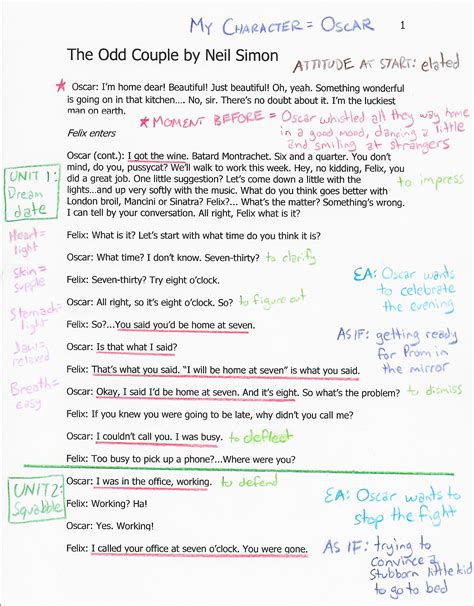 MY CHARACTER = OSCAR
1
The Odd Couple by Neil Simon
ATTITUDE AT START: elated
* Oscar: I'm home dear! Beautiful! Just beautiful! Oh, yeah. Something wonderful
is going on in that kitchen.... No, sir. There's no doubt about it. I'm the luckiest
man on earth.
* MOMENT BEFORE = Oscar whistled all they way home
in a good mood, dancing a little
and smiling at strangers
Felix enters
UNIT 1:
Dream
date
Oscar (cont.): I got the wine. Batard Montrachet. Six and a quarter. You don't
mind, do you, pussycat? We'll walk to work this week. Hey, no kidding, Felix, you
did a great job. One little suggestion? Let's come down a little with the
lights...and up very softly with the music. What do you think goes better with
London broil, Mancini or Sinatra? Felix?... What's the matter? Something's wrong.
I can tell by your conversation. All right, Felix what is it?
to impress
Heart=
light
Skin=
supple
Stomach=
light
Jaw=
relaxed
Breath=
easy
Felix: What is it? Let's start with what time do you think it is?
Oscar: What time? I don't know. Seven-thirty? to clarify
Felix: Seven-thirty? Try eight o'clock.
EA: Oscar wants
to celebrate
the evening
Oscar: All right, so it's eight o'clock. So? to figure out
Felix: So?...You said you'd be home at seven.
AS IF: getting ready
for Prom in
the mirror
Oscar: Is that what I said?
Felix: That's what you said. "I will be home at seven" is what you said.
Oscar: Okay, I said I'd be home at seven. And it's eight. So what's the problem? to dismiss
Felix: If you knew you were going to be late, why didn't you call me?
Oscar: I couldn't call you. I was busy. to deflect
Felix: Too busy to pick up a phone?...Where were you?
UNIT 2:
Squabble
Oscar: I was in the office, working. to defend
Felix: Working? Ha!
EA: Oscar wants to
stop the fight
Oscar: Yes. Working!
Felix: I called your office at seven o'clock. You were gone.
AS IF: trying to
convince a
Stubborn little kid
to go to bed